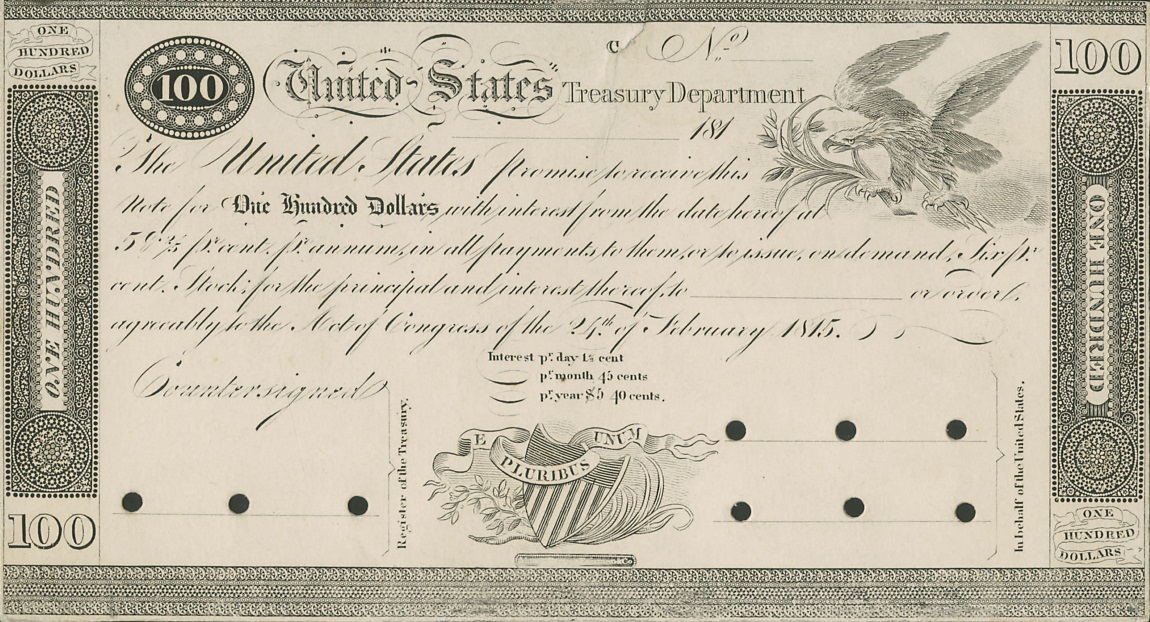 ONE
HUNDRED
DOLLARS
100
100
C Nº
United States Treasury Department
181
The United States promise to receive this
Note for One Hundred Dollars, with interest from the date hereof at
5 2/5 pr. cent. pr. annum, in all payments to them, or to issue, on demand, Six pr.
cent. Stock, for the principal and interest thereof, to or order,
agreeably to the Act of Congress of the 24th of February 1815.
Interest pr. day 1½ cent
pr. month 45 cents
pr. year $5 40 cents.
Countersigned
Register of the Treasury.
E PLURIBUS UNUM
In behalf of the United States.
ONE HUNDRED
ONE HUNDRED
100
ONE
HUNDRED
DOLLARS